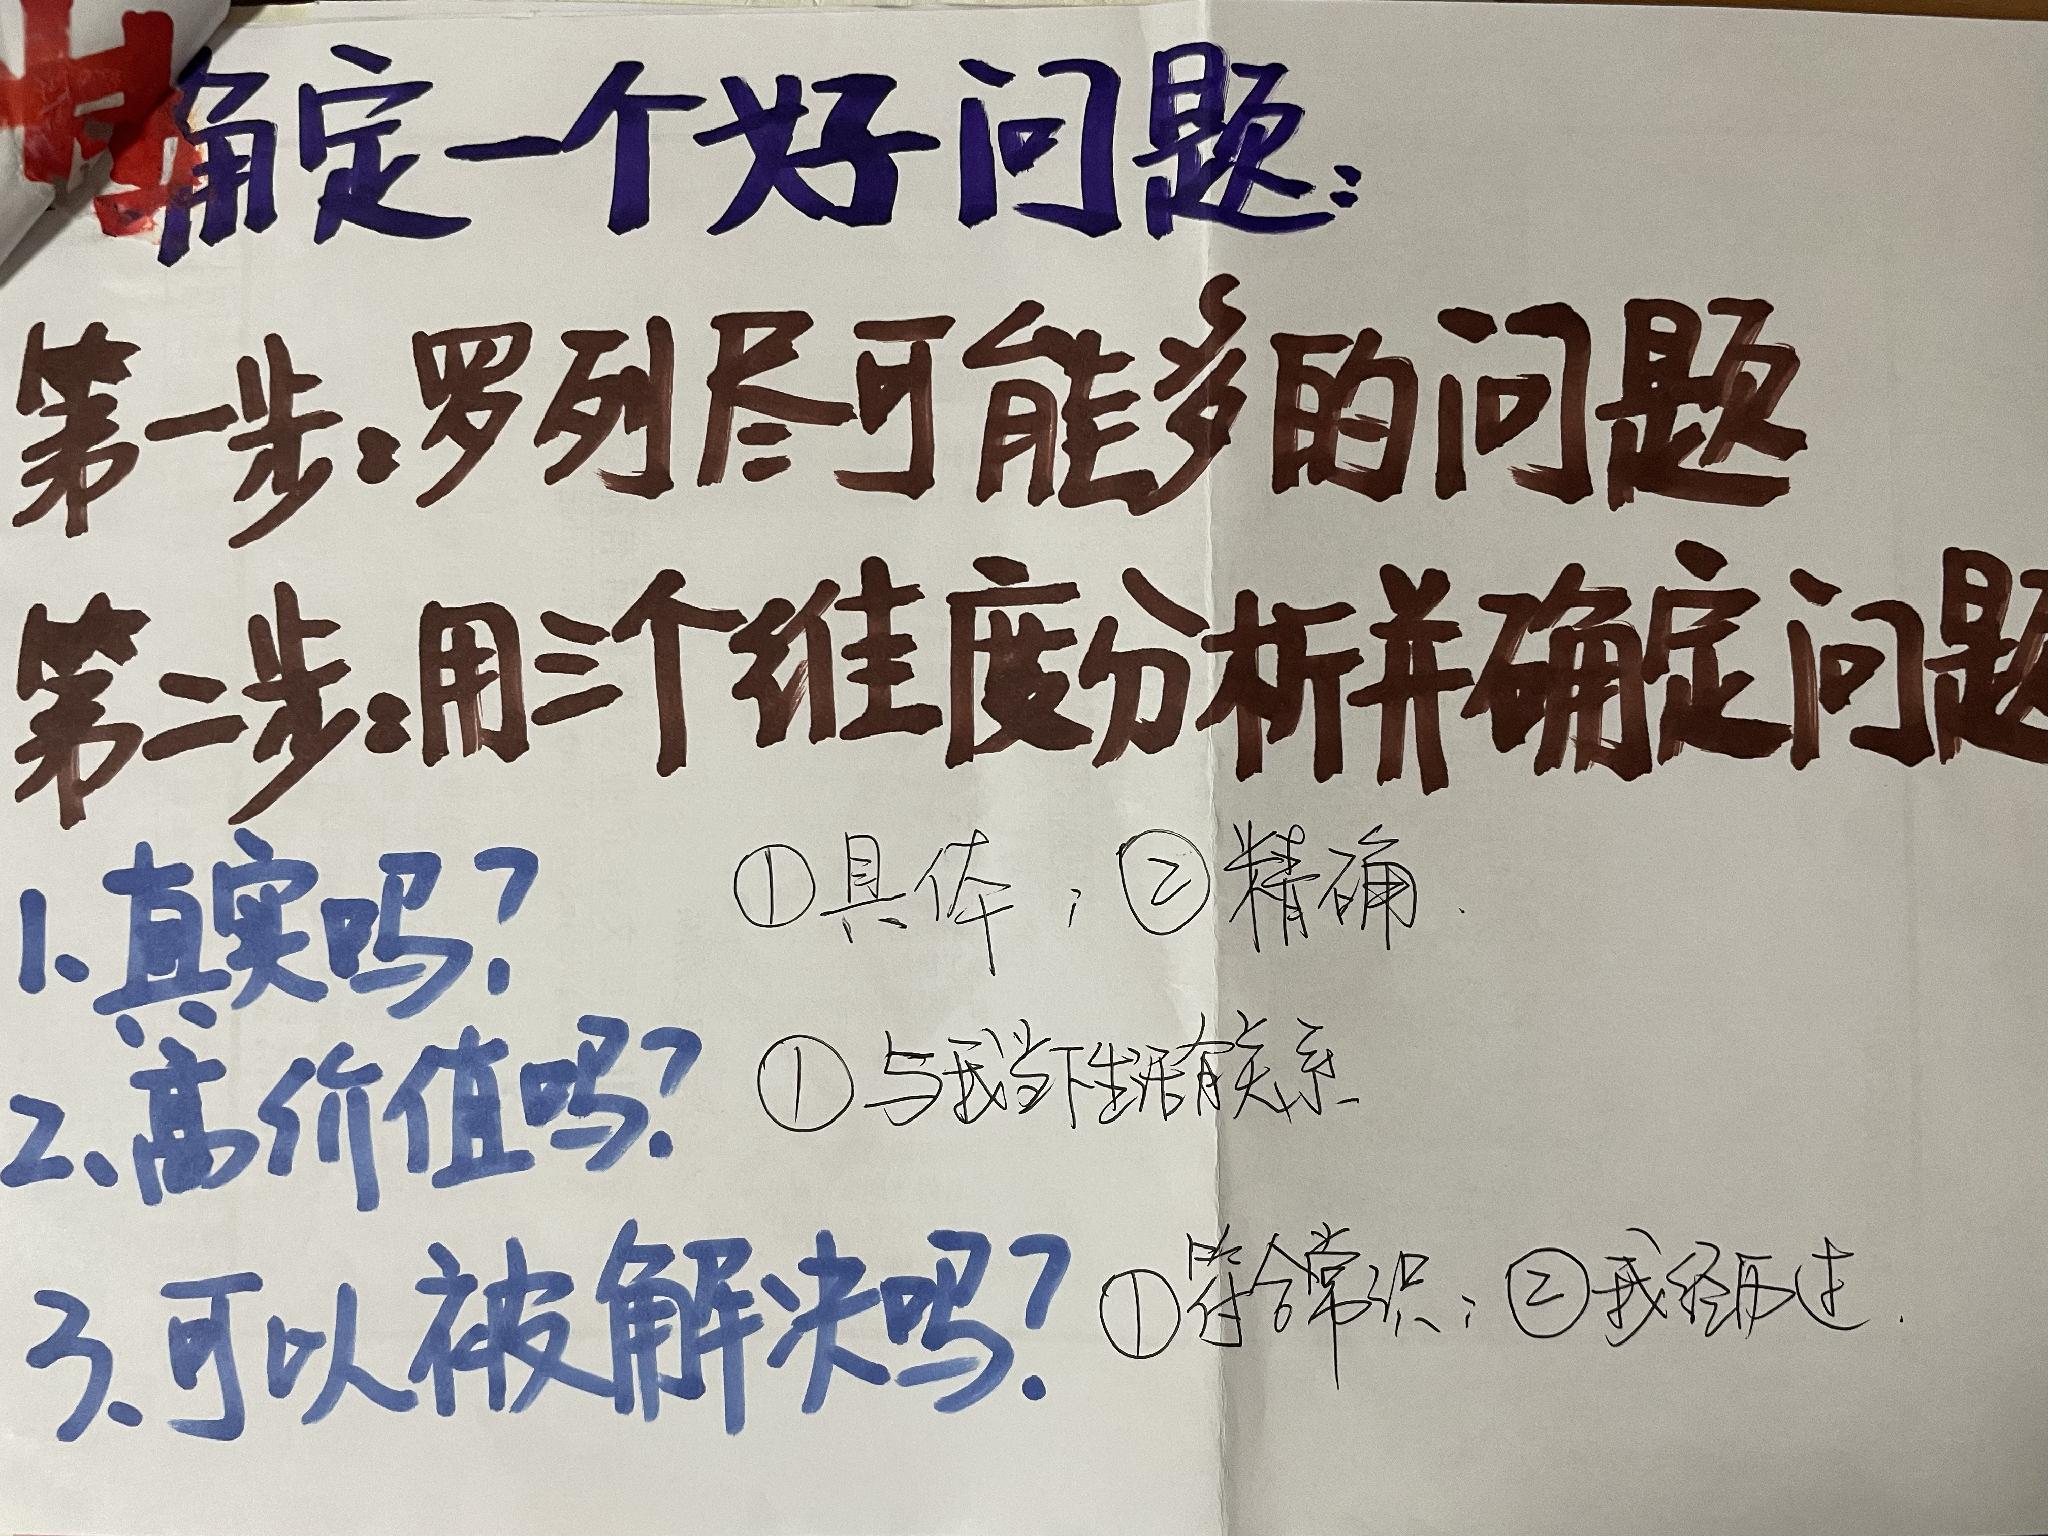 确定一个好问题：
第一步：罗列尽可能多的问题
第二步：用三个维度分析并确定问题
1、真实吗？ ①具体；②精确．
2、高价值吗？ ①与我当下生活有关系
3、可以被解决吗？ ①符合常识；②我经历过．